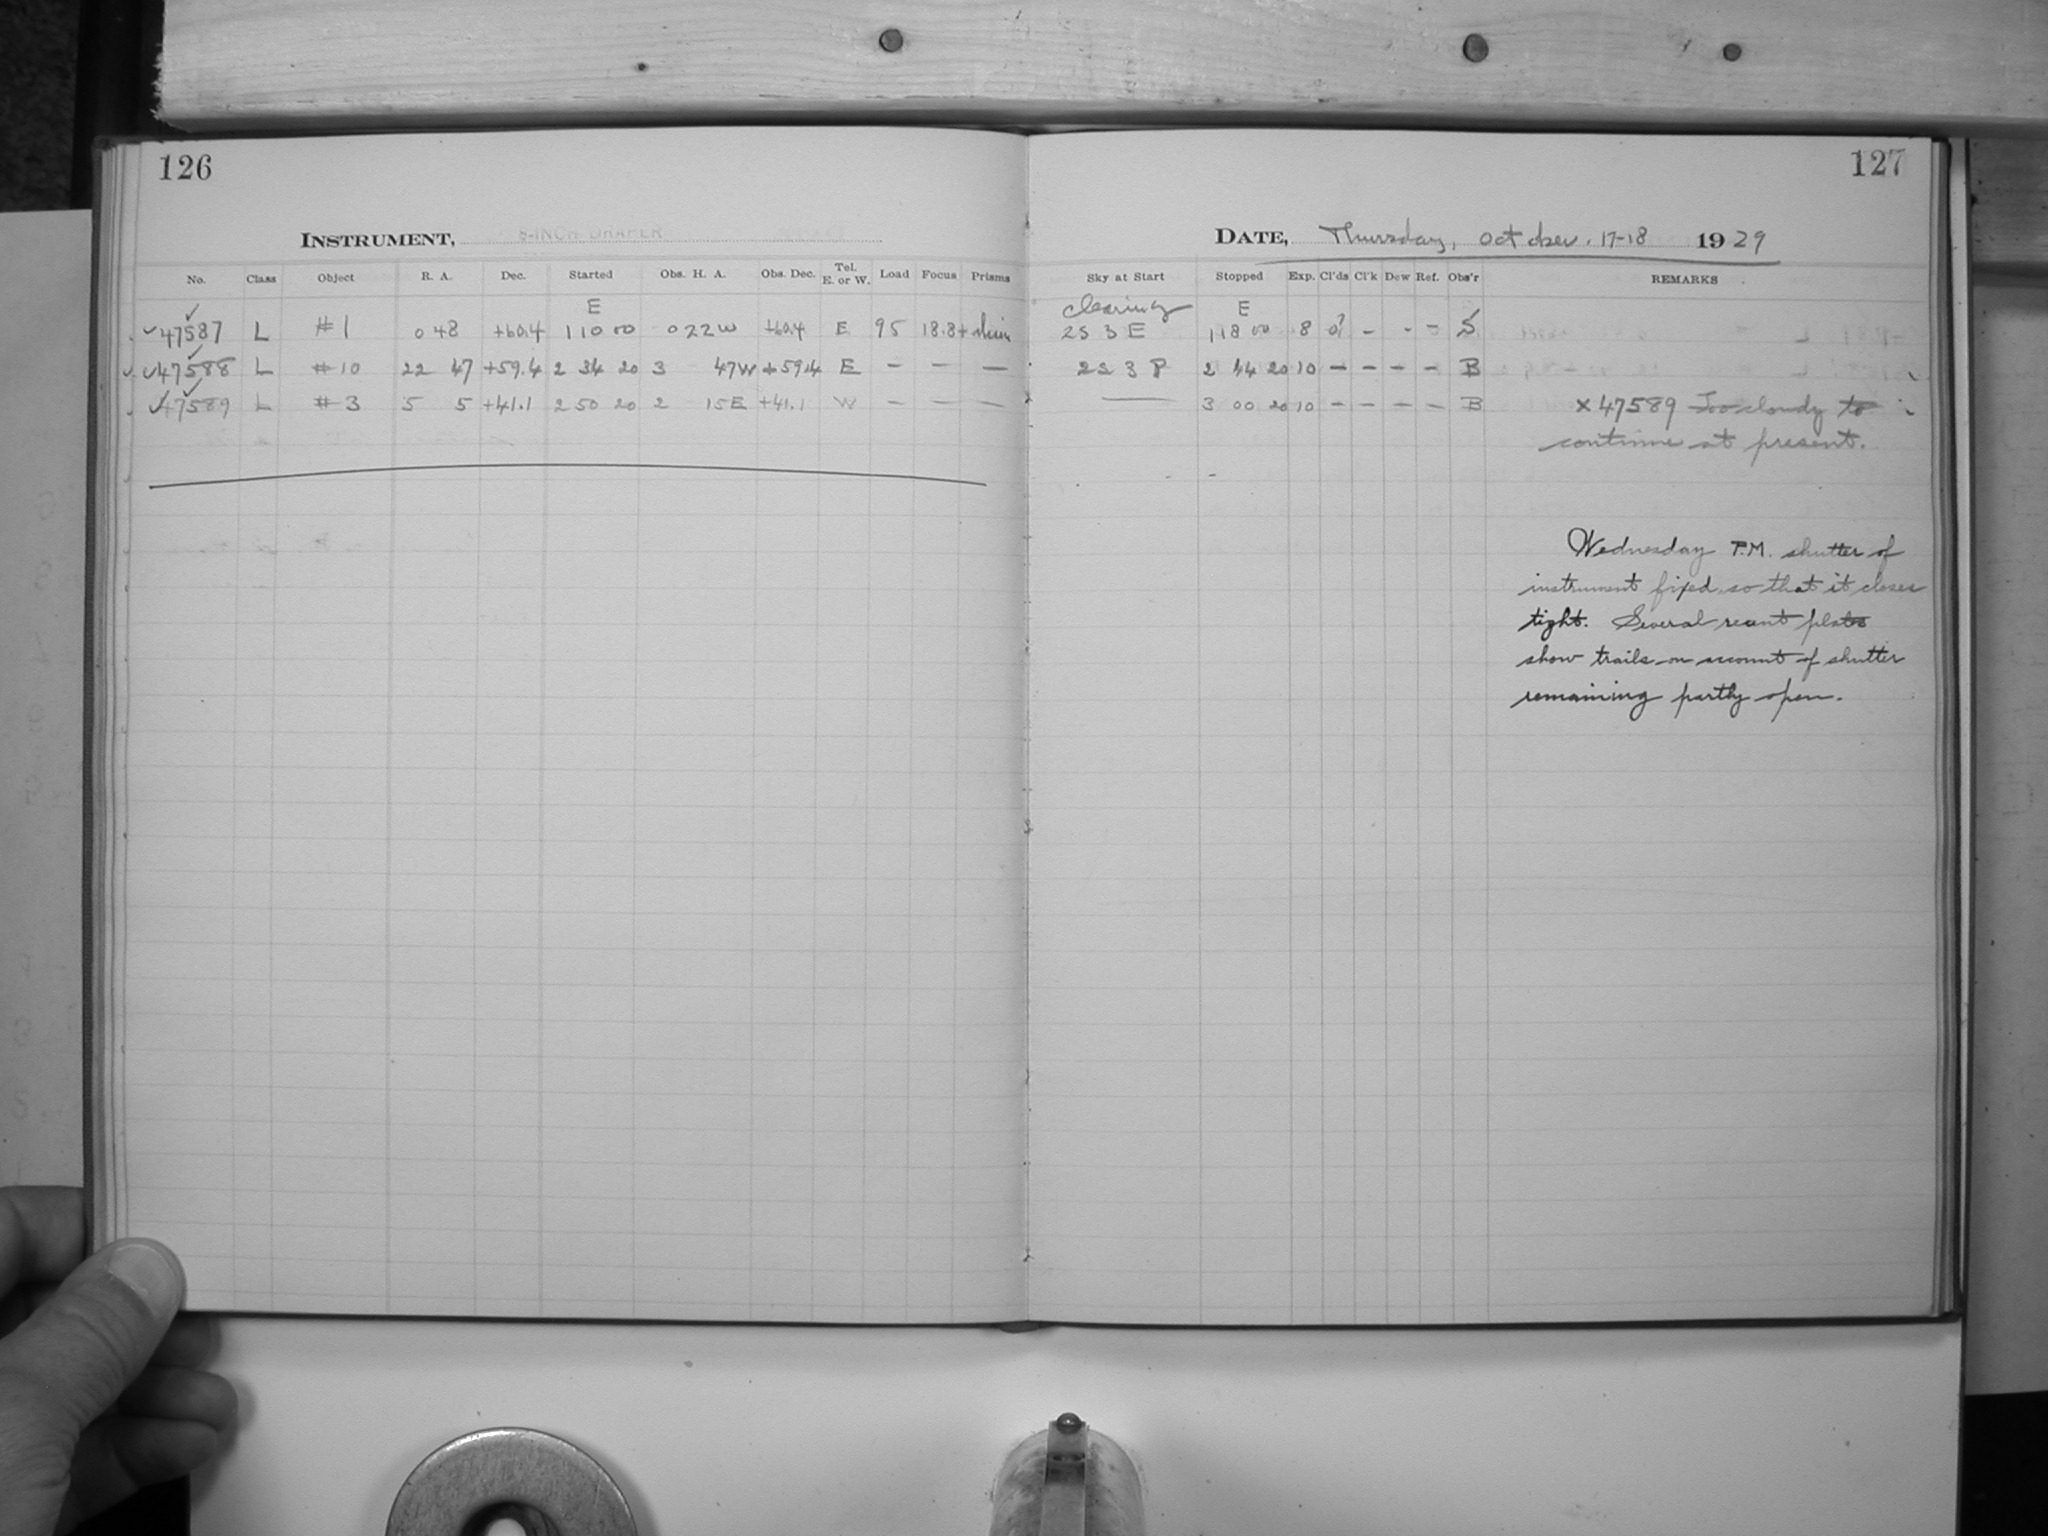 126
127
INSTRUMENT, 8-INCH DRAPER
DATE, Thursday, October. 17-18 1929
No. Class Object R. A. Dec. Started Obs. H. A. Obs. Dec. Tel. E. or W. Load Focus Prisms Sky at Start Stopped Exp. Cl'ds Cl'k Dew Ref. Obs'r REMARKS
E clearing E
47587 L #1 0 48 +60.4 1 10 00 0 22 W +60.4 E 95 18.8+ 2S 3 E 1 18 00 8 0? - - - S
47588 L #10 22 47 +59.4 2 34 20 3 47W +59.4 E - - - 2S 3 P 2 44 20 10 - - - - B
47589 L #3 5 5 +41.1 2 50 20 2 15E +41.1 W - - - — 3 00 20 10 - - - - B x 47589 Too cloudy to
continue at present.
Wednesday P.M. shutter of
instrument fixed so that it closes
tight. Several recent plates
show trails on account of shutter
remaining partly open.